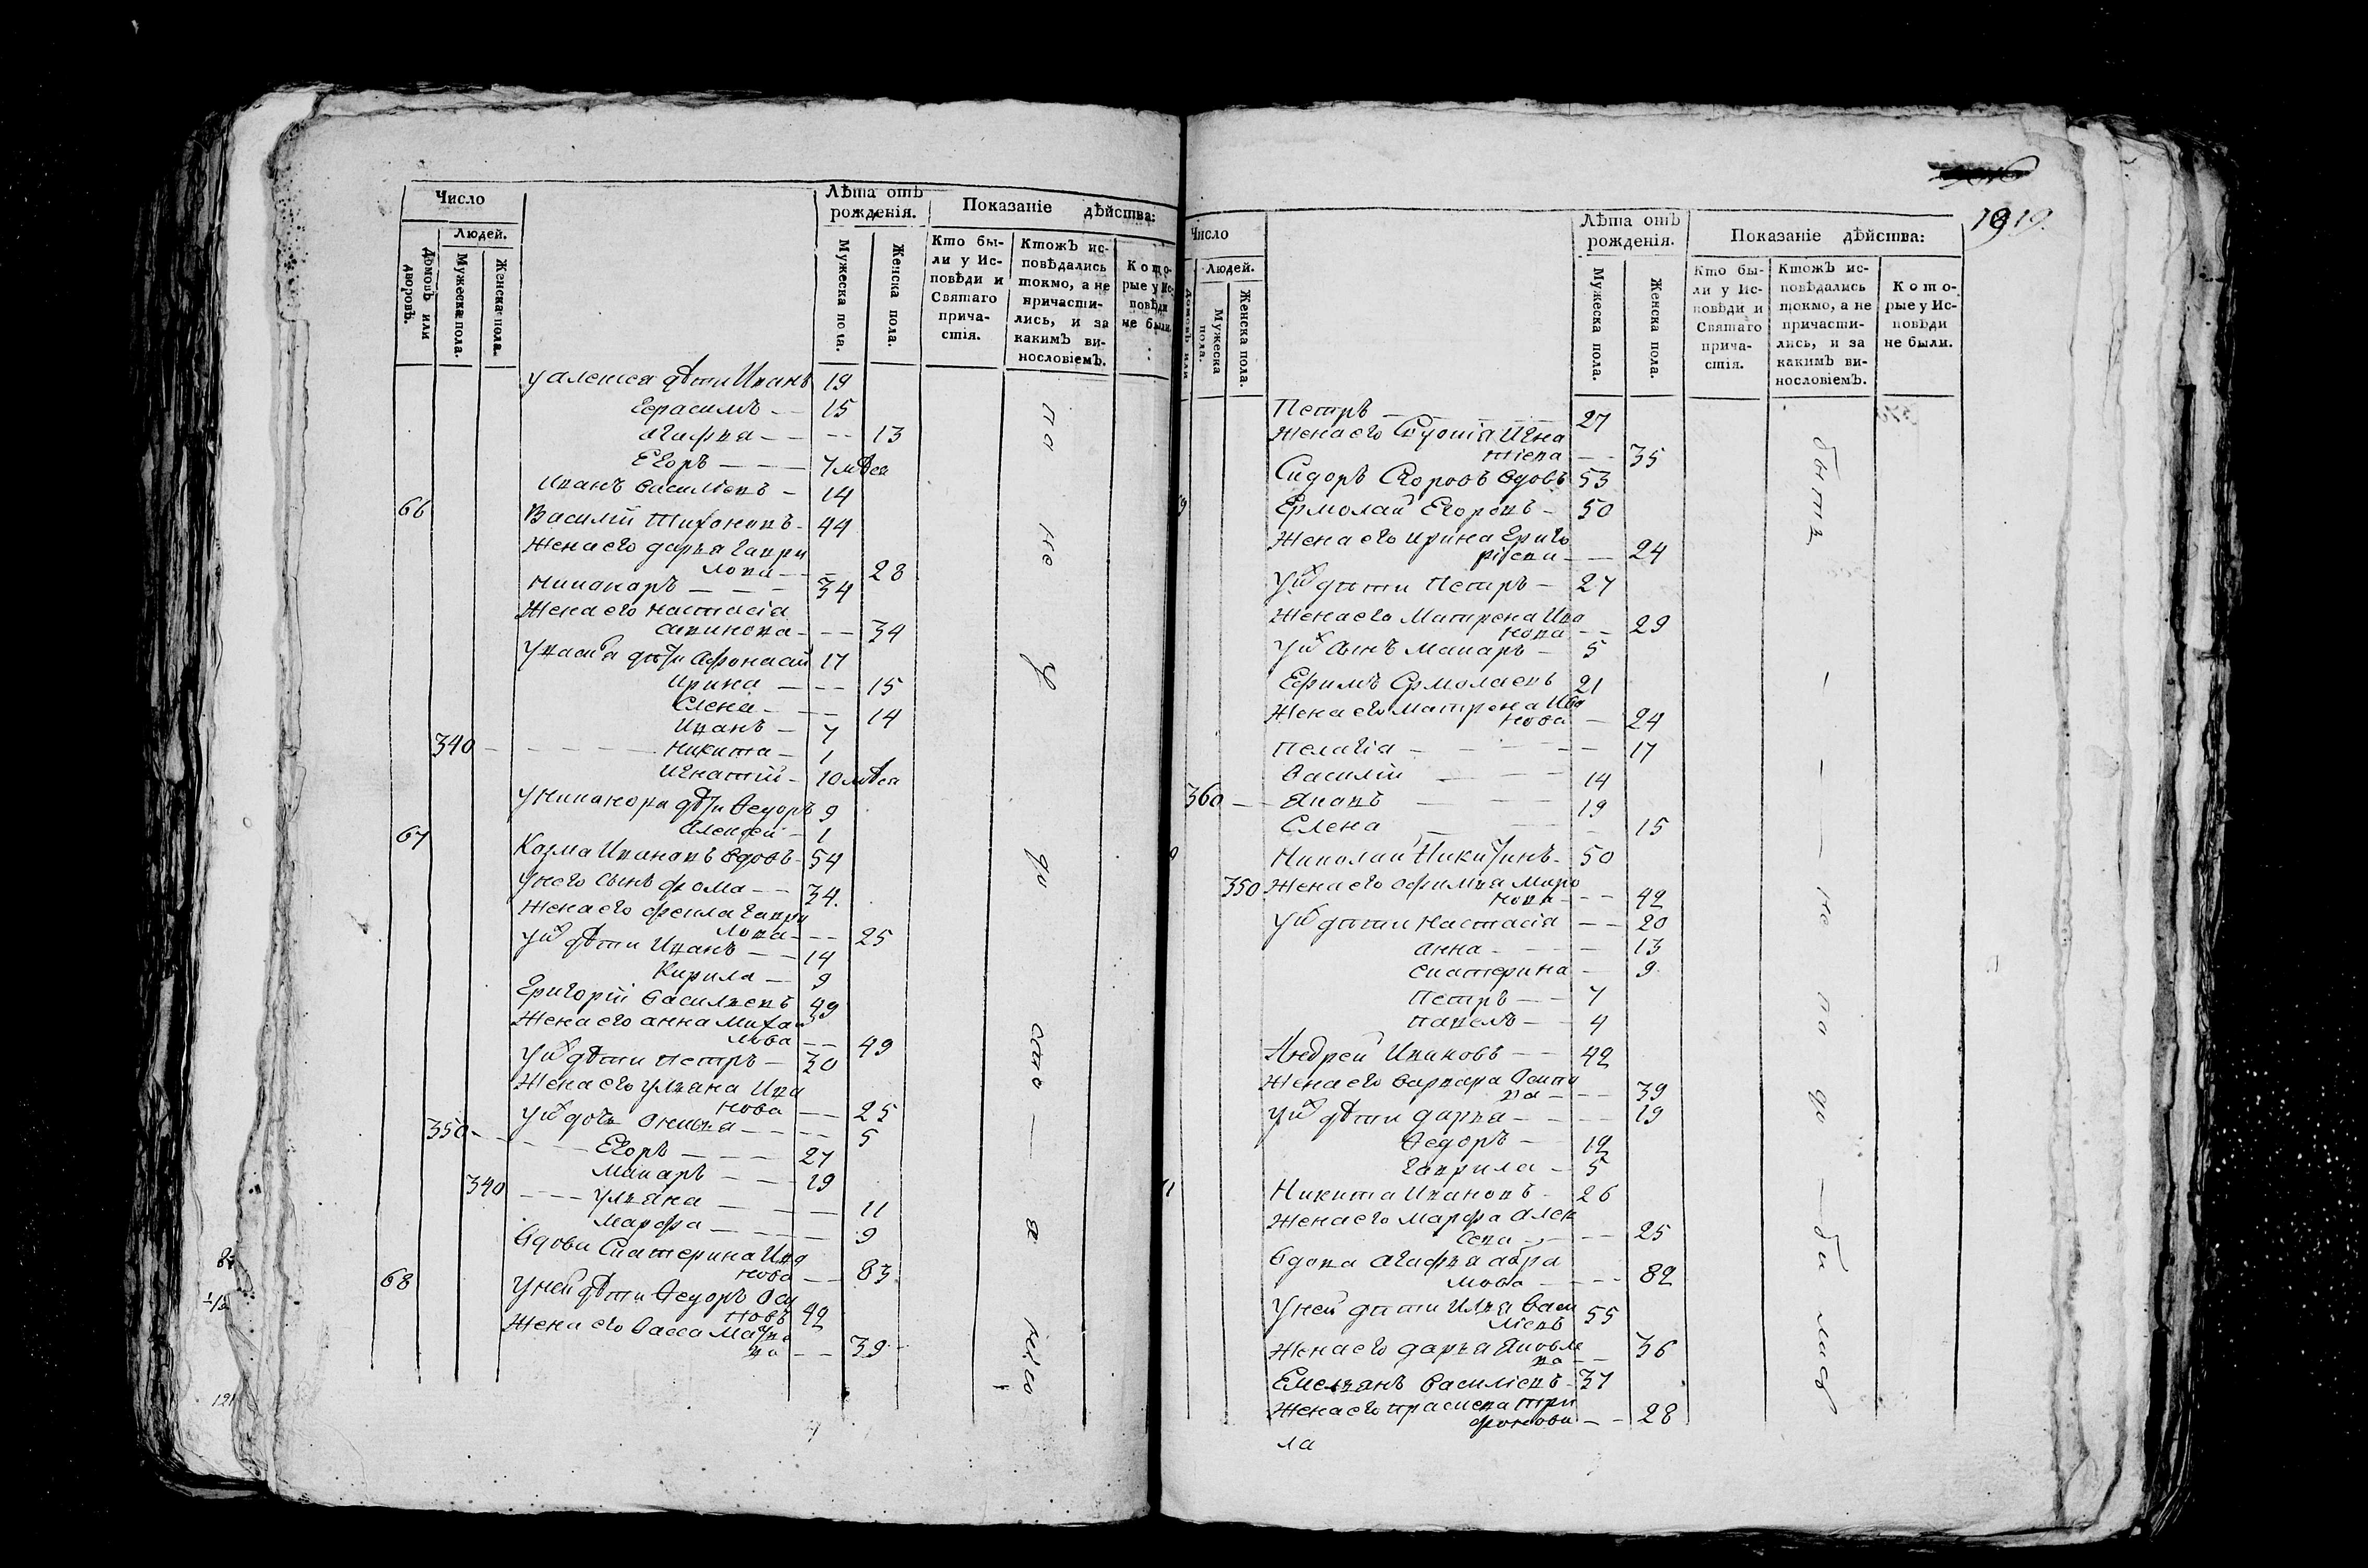 Число
Лѣта отъ
рожденія.
Показаніе дѣйства:
Людей.
Домовъ или
дворовъ.
Мужеска пола.
Женска пола.
Мужеска пола.
Женска пола.
Кто бы-
ли у Ис-
повѣди и
Святаго
прича-
стія.
Ктожъ ис-
повѣдались
токмо, а не
причасти-
лись, и за
какимъ ви-
нословіемъ.
Кото-
рые у Ис-
повѣди
не были.
дѣти Иванъ 19
Герасимъ - - 15
агафья - - - - 13
Егоръ - - - 7 мѣса
Иванъ василіевъ - 14
66 Василій Тихоновъ - 44
Жена его дарья гаври
лова - - - 28
Никаноръ - - - 34
Жена его настасія
савинова - - - 34
дѣти Афонасий 17
Ирина - - - 15
Елена - - - 14
Иванъ - 7
340 - - - - - Никита - 1
Игнатій - 10 мѣса
У Никанора дѣти Ѳедоръ 9
Алексей - 1
67 Козма Ивановъ вдовъ - 54
У него сынъ фома - - 34.
Жена его фекла гаври
лова - - - 25
У ихъ дѣти Иванъ - - 14
Кирила - 9
Григорій васильевъ 49
Жена его анна Михаи
лова - - 49
У ихъ дѣти петръ - 30
Жена его ульяна Ива
нова - - 25
У ихъ дочь - - - 5
350 - - - Егоръ - - - 27
Макаръ - - - 19
340 - - - ульяна - - - 11
Марфа - - - 9
вдова Екатерина Ива
нова - - 83
68 У ней дѣти Ѳедоръ Оси
повъ 42
Жена его васса
ва - - 39
1919.
Число
Лѣта отъ
рожденія.
Показаніе дѣйства:
Людей.
Домовъ или
Мужеска
пола.
Женска пола.
Мужеска пола.
Женска пола.
Кто бы-
ли у Ис-
повѣди и
Святаго
прича-
стія.
Ктожъ ис-
повѣдались
токмо, а не
причасти-
лись, и за
какимъ ви-
нословіемъ.
Кото-
рые у Ис-
повѣди
не были.
Петръ - - - 27
Жена его Игна
тіева - - 35
Сидоръ Егоровъ вдовъ 53
Ермолай Егоровъ - 50
Жена его ирина Григо
ріева - - 24
У ихъ дѣти Петръ - 27
Жена его Матрена Ива
нова - - 29
У ихъ сынъ Макаръ - 5
Ефимъ Ермолаевъ 21
Жена его Матрена Ива
нова - 24
Пелагіа - - - 17
Василій - - - 14
360 - - - - - 19
Елена - - - 15
Николай Никитинъ - 50
350 Жена его афимья Миро
нова - - - 42
У ихъ дѣти Настасіа - - 20
анна - - - 13
екатерина - 9
Петръ - - 7
павелъ - - 4
Андрей Ивановъ - - 42
Жена его варвара Осипо
ва - - - 39
У ихъ дѣти дарья - - - 19
Ѳедоръ - 12
гаврила - 5
Никита Ивановъ - 26
Жена его Марфа алек
сева - - - 25
вдова агафья авра
мова - - - 82
У ней дѣти Илья васи
ліевъ 55
Жена его дарья яковле
ва - - 36
Емельянъ василіевъ - 37
Жена его прасковья три
фонова - - 28
ла